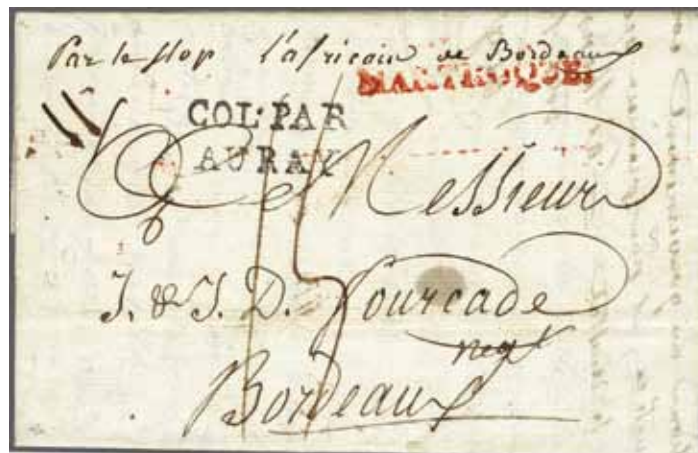 Par le slop l'africain de Bordeaux
MARTINIQUE.
COL·PAR
AURAY
A Messieurs
6
15
J. & J. D. Fourcade
negt
Bordeaux